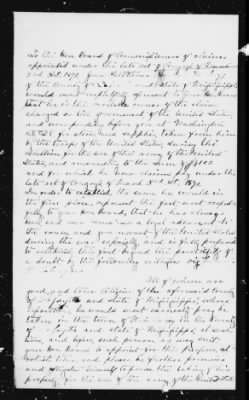 To the Hon Board of Commissioners of claims
appointed under the late act of Congress of March
3rd 1871, your Petitioner
of the County of and State of Mississippi
would most respectfully represent to your Hon Board
that he is the owner of the claim
charged to the government of the United States,
and now pending before you at Washington
for stores and supplies, taken from him
by the troops of the United States, during the
Rebellion for the use of the army of the United
States, and amounting to the sum of
and for which he now claims pay under the
late act of Congress of March 3rd 1871.
In order to establish the same he would in
the first place, represent the fact most respect-
fully to your Hon Board, that he has always
been and now is a loyal adherent to
the cause, and government of the United States
during the war especially, and is fully prepared
to establish this fact beyond the possibility of
a doubt by the following witnesses
all of whom are
good, and true citizens of the aforesaid county
of Lafayette and State of Mississippi, whose
deposition, he would most earnestly pray be
taken in the town of in the County
of Lafayette and State of Mississippi, at such
time, and before such person as may suit
your Hon Board to appoint for this purpose, at
which time, and place he further promises
and obliges himself to prove the taking of his
property, for the use of the army of the United States